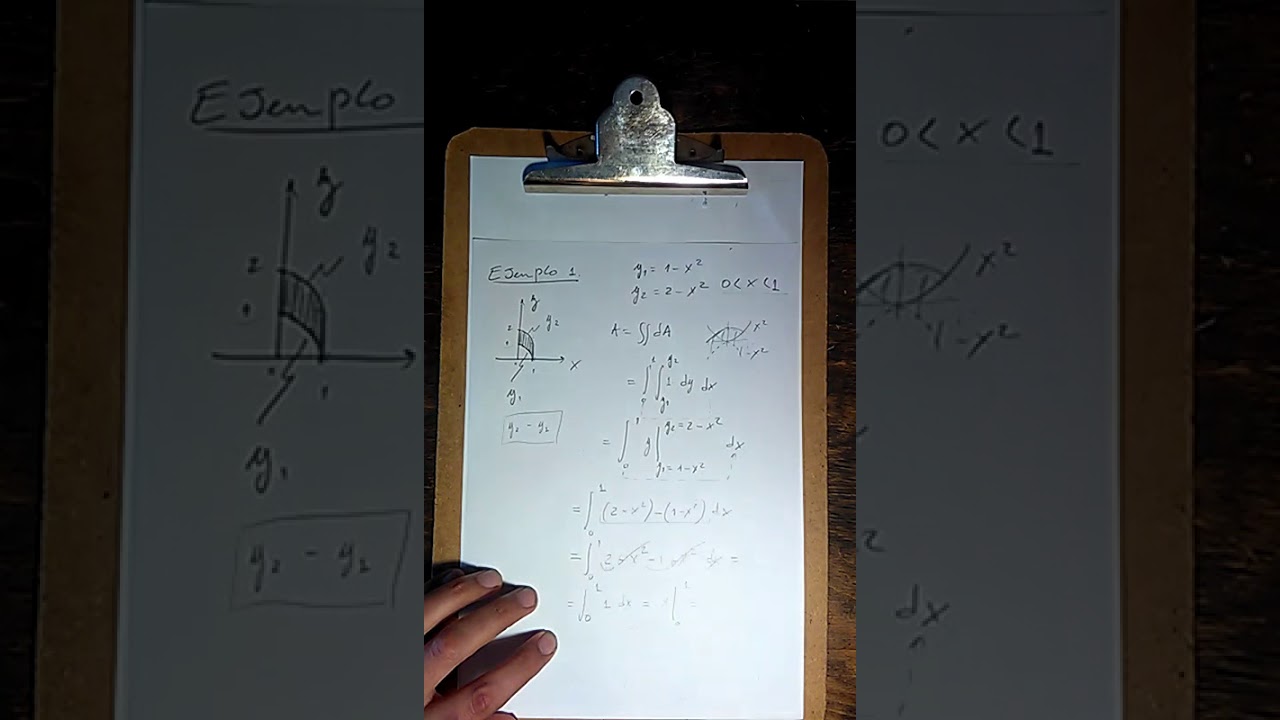 Ejemplo 1.
y₁ = 1 - x²
y₂ = 2 - x² 0 < x < 1
y
2
y₂
1
x
1
y₁
y₂ - y₂
A = ∬ dA
x²
1 - x²
= ∫₀¹ ∫_{y₁}^{y₂} 1 dy dx
= ∫₀¹ y |_{y₁ = 1 - x²}^{y₂ = 2 - x²} dx
= ∫₀¹ (2 - x²) - (1 - x²) dx
= ∫₀¹ 2 - x² - 1 + x² dx =
= ∫₀¹ 1 dx = x |₀¹ =